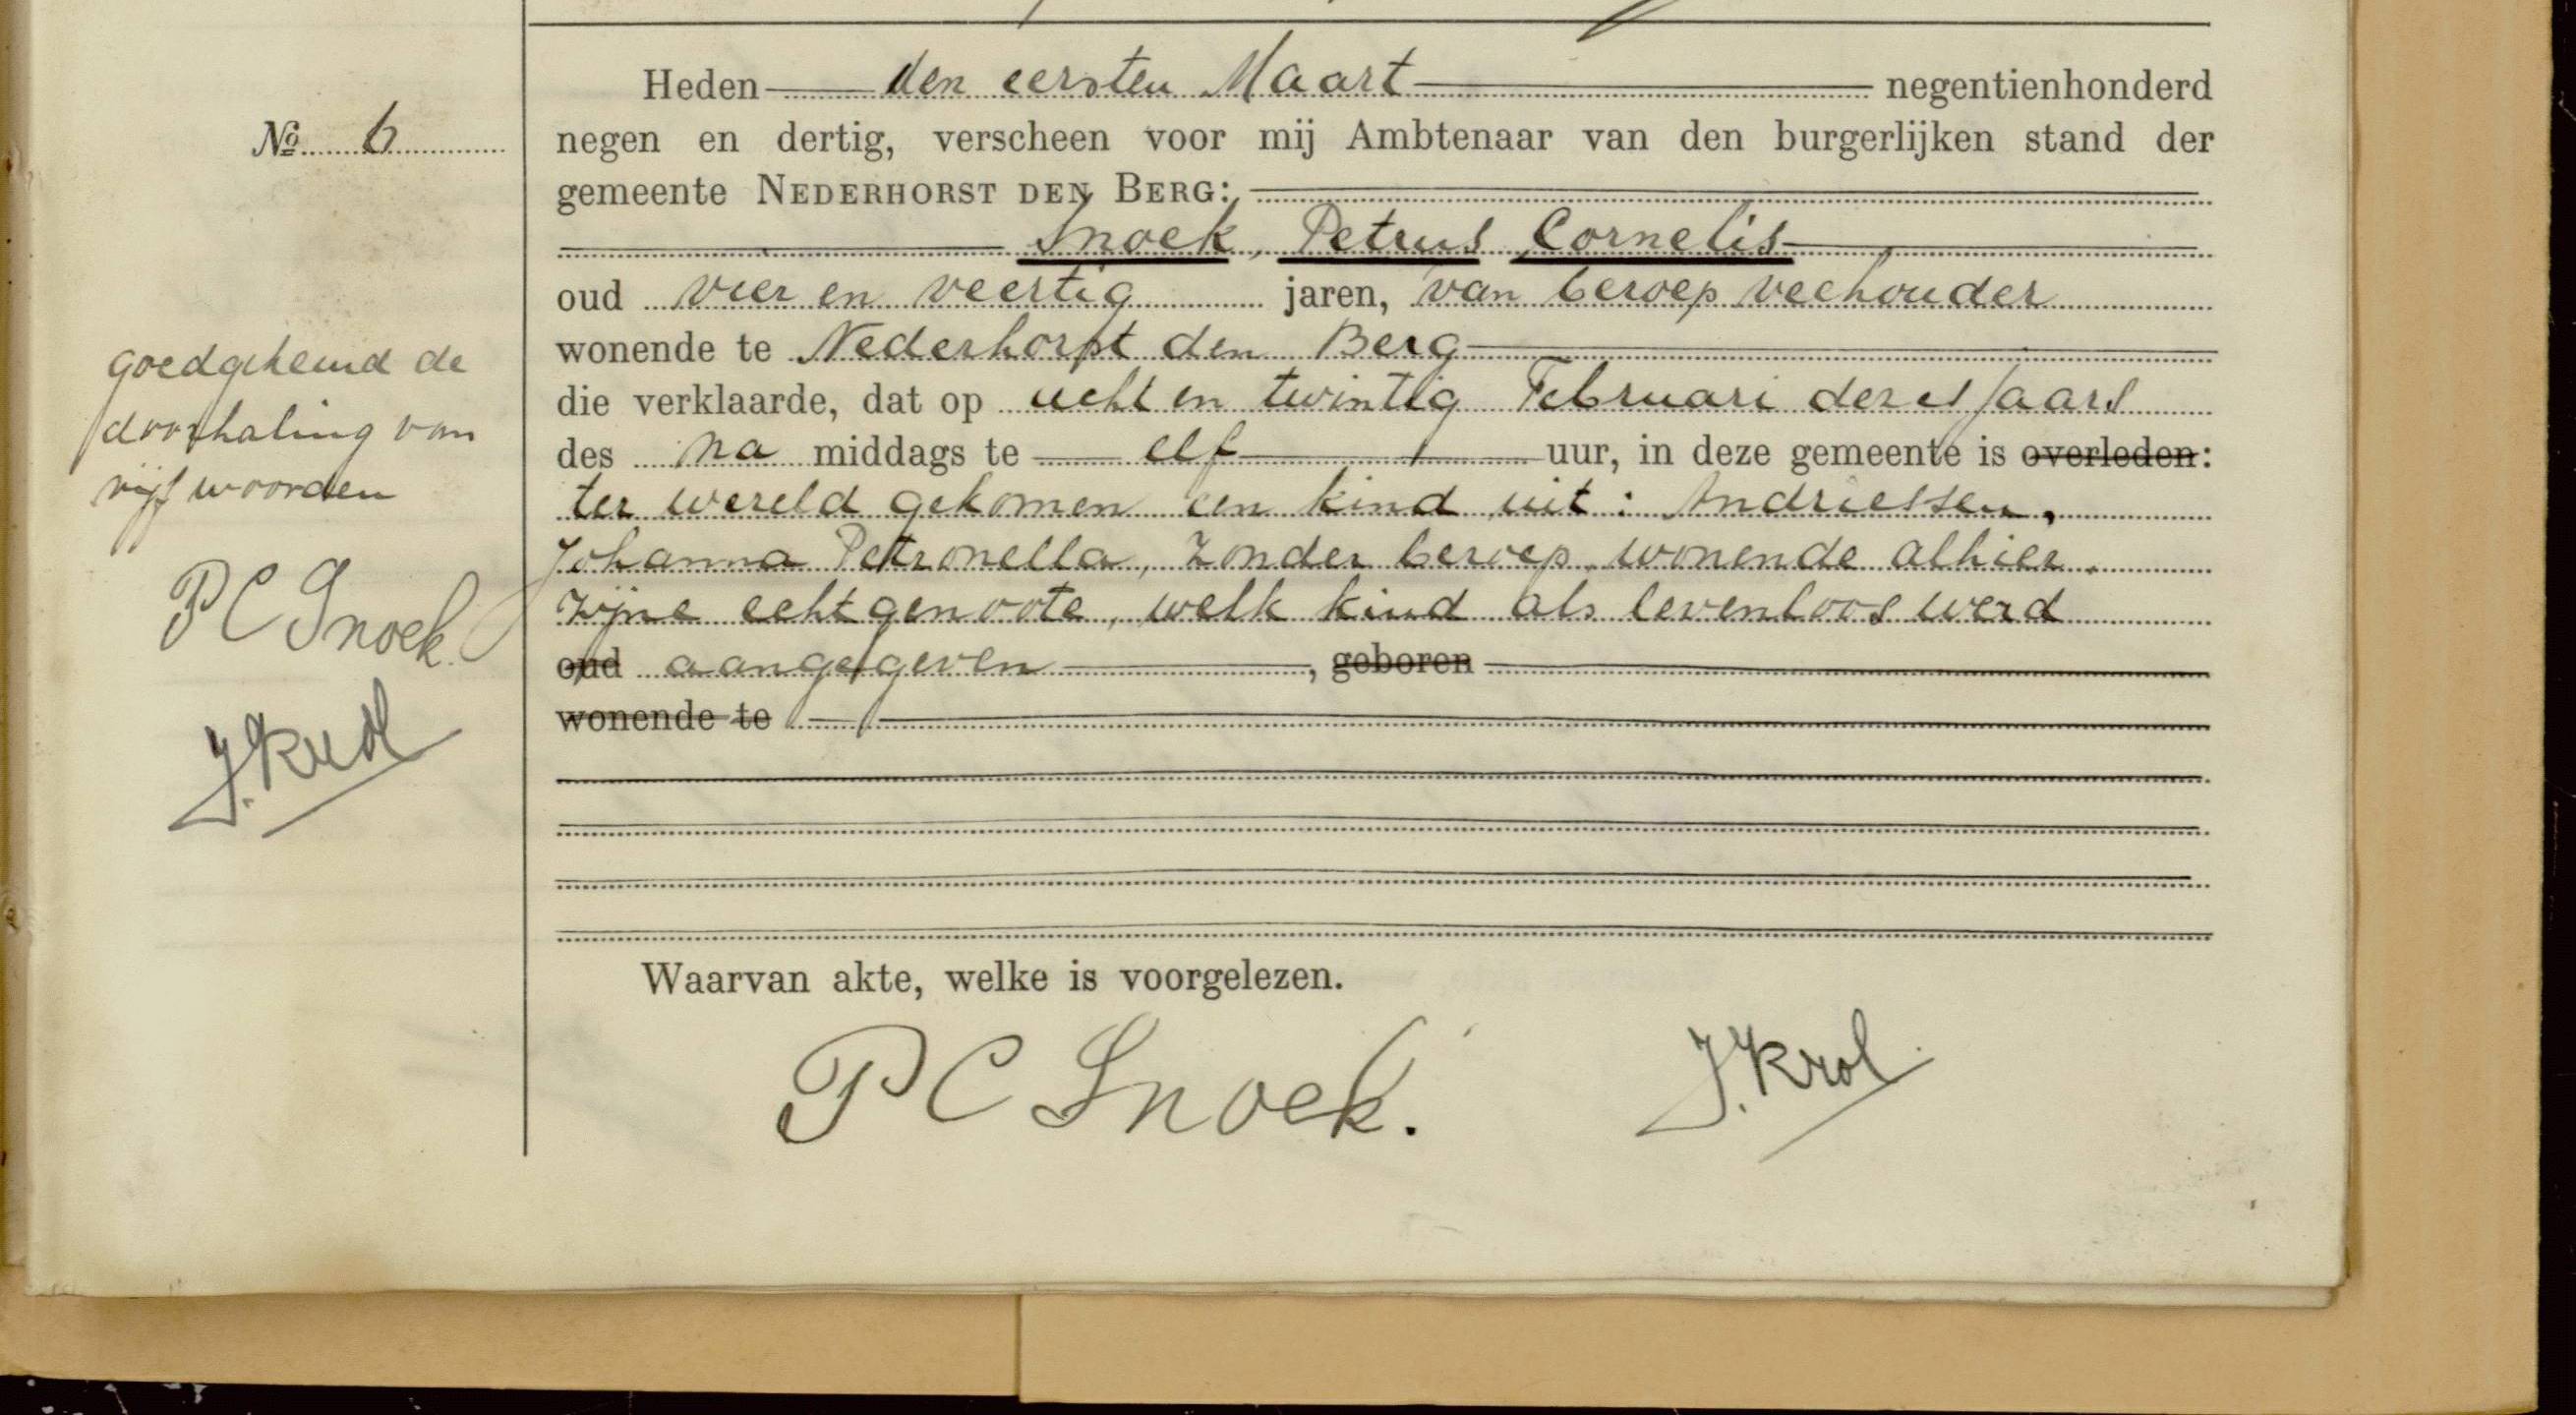 Nº 6
Heden den eersten Maart negentienhonderd
negen en dertig, verscheen voor mij Ambtenaar van den burgerlijken stand der
gemeente NEDERHORST DEN BERG:
Snoek, Petrus Cornelis
oud vier en veertig jaren, van beroep veehouder
wonende te Nederhorst den Berg
die verklaarde, dat op acht en twintig Februari dezes jaars
des na middags te elf uur, in deze gemeente is overleden:
ter wereld gekomen een kind uit: Andriessen,
Johanna Petronella, zonder beroep, wonende alhier.
zijne echtgenoote, welk kind als levenloos werd
oud aangegeven, geboren
wonende te
Waarvan akte, welke is voorgelezen.
P C Snoek. J. Krol
goedgekeurd de
doorhaling van
vijf woorden
P C Snoek.
J. Krol